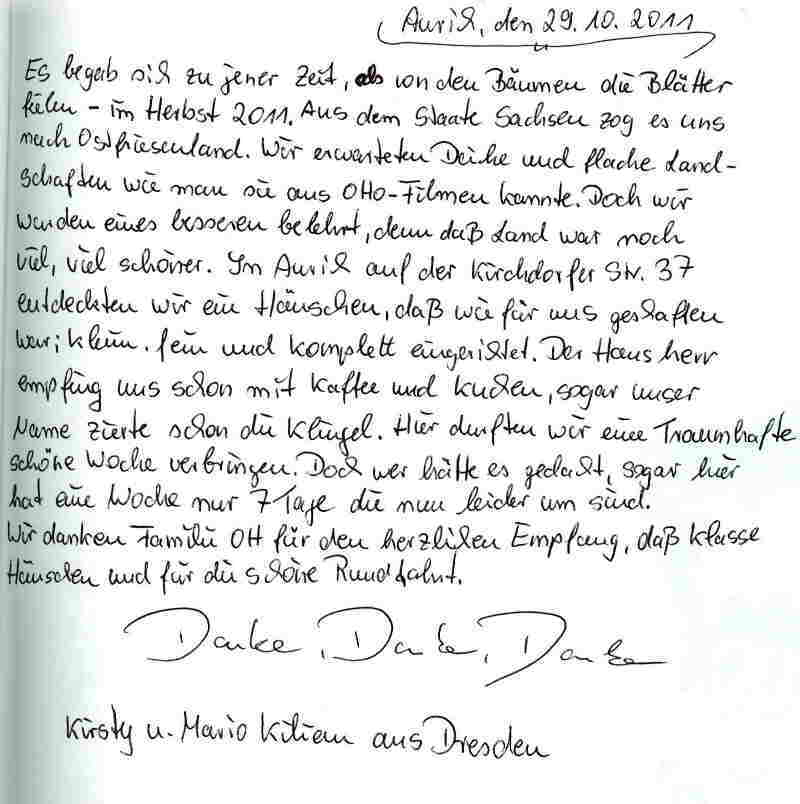 Aurich, den 29.10.2011
Es begab sich zu jener Zeit, als von den Bäumen die Blätter
fielen - im Herbst 2011. Aus dem Staate Sachsen zog es uns
nach Ostfriesenland. Wir erwarteten Deiche und flache Land-
schaften wie man sie aus OTTO-Filmen kannte. Doch wir
wurden eines besseren belehrt, denn daß Land war noch
viel, viel schöner. In Aurich auf der Kirchdorfer Str. 37
entdeckten wir ein Häuschen, daß wie für uns geschaffen
war; klein. fein und komplett eingerichtet. Der Hausherr
empfing uns schon mit Kaffee und Kuchen, sogar unser
Name zierte schon die Klingel. Hier durften wir eine Traumhafte
schöne Woche verbringen. Doch wer hätte es gedacht, sogar hier
hat eine Woche nur 7 Tage die nun leider um sind.
Wir danken Familie Ott für den herzlichen Empfang, daß klasse
Häuschen und für die schöne Rundfahrt.
Danke, Danke, Danke
Kirsty u. Mario Kilian aus Dresden